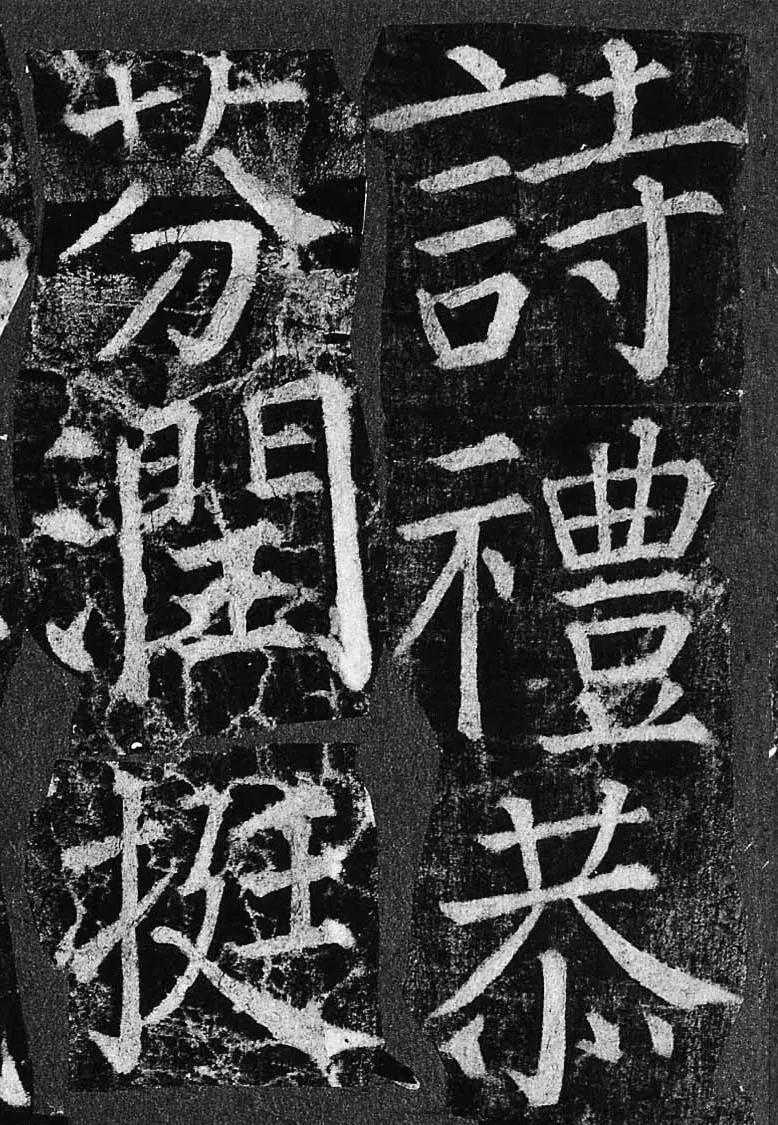 詩禮恭
芬潤挺